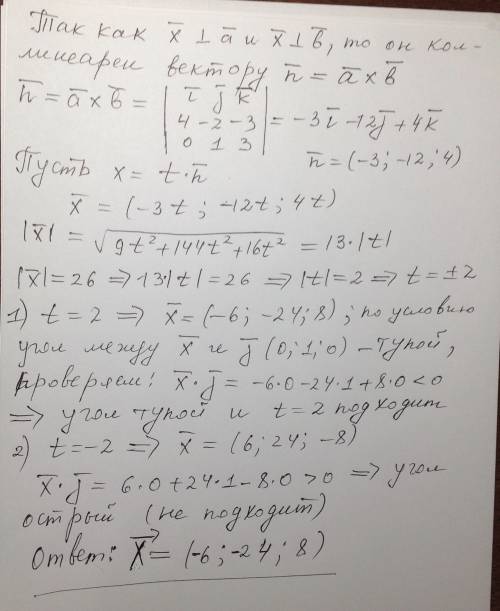 Так как x̄ ⊥ ā и x̄ ⊥ b̄, то он кол-
линеарен вектору n̄ = ā × b̄
n̄ = ā × b̄ = | ī j̄ k̄ |
| 4 -2 -3 | = -3ī -12j̄ + 4k̄
| 0 1 3 |
n̄ = (-3; -12; 4)
Пусть x = t·n̄
x̄ = (-3t; -12t; 4t)
|x̄| = √(9t² + 144t² + 16t²) = 13·|t|
|x̄| = 26 => 13·|t| = 26 => |t| = 2 => t = ±2
1) t = 2 => x̄ = (-6; -24; 8); по условию
угол между x̄ и j̄ (0; 1; 0) – тупой,
проверяем: x̄·j̄ = -6·0 -24·1 + 8·0 < 0
=> угол тупой и t = 2 подходит
2) t = -2 => x̄ = (6; 24; -8)
x̄·j̄ = 6·0 + 24·1 - 8·0 > 0 => угол
острый (не подходит)
Ответ: x⃗ = (-6; -24; 8)